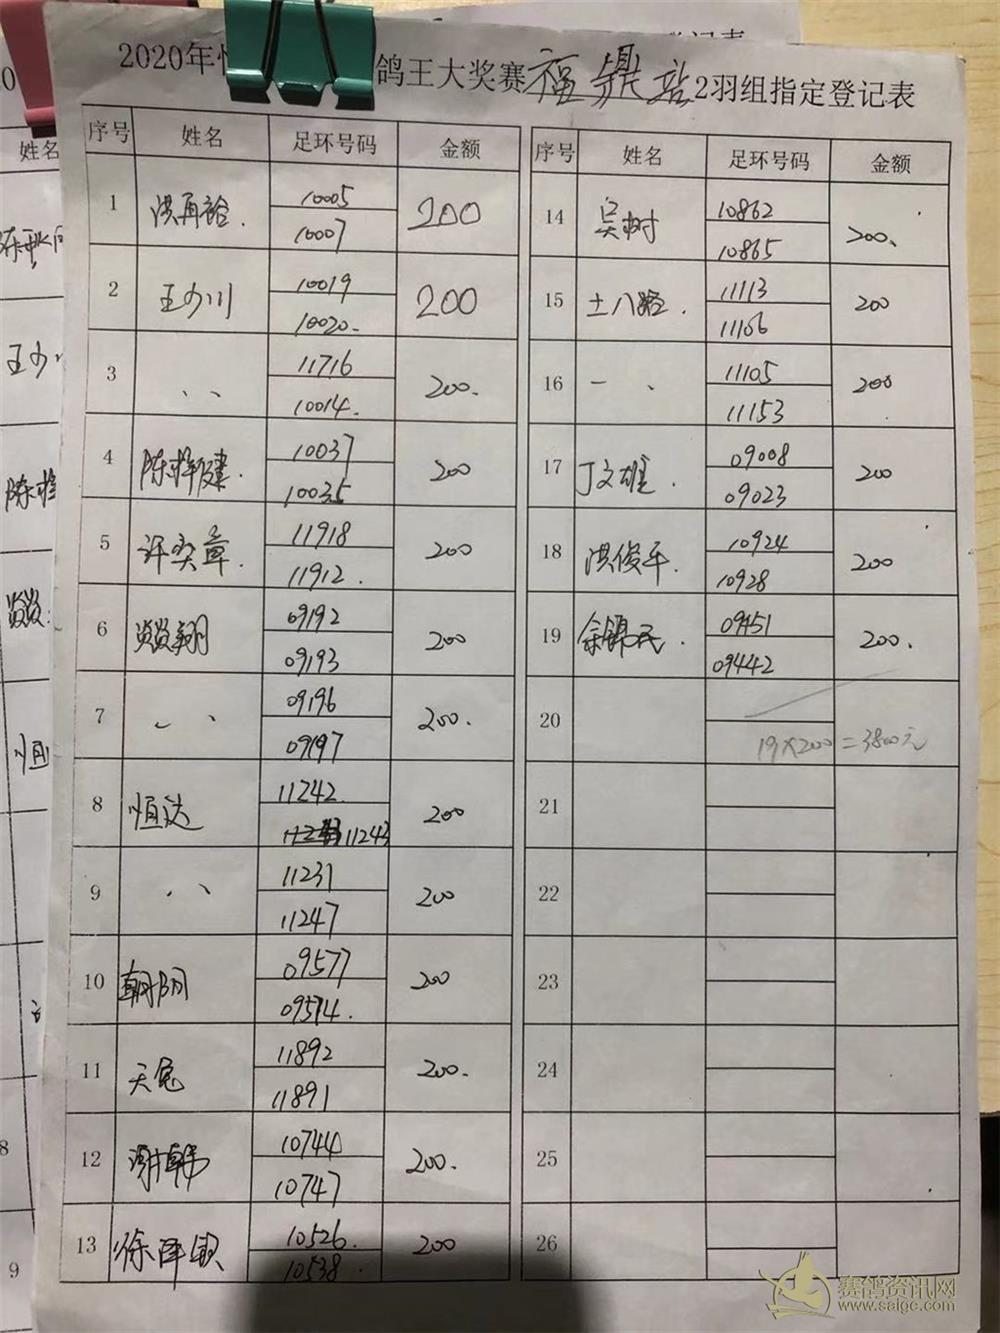 2020年
鸽王大奖赛福鼎站2羽组指定登记表
序号 姓名 足环号码 金额
1 洪再 10005 10007 200
2 王少川 10019 10020. 200
3 、、 11716 10014. 200.
4 陈 建. 10037 10035 200
5 许奕章. 11918 11912. 200
6 翔 09192 09193 200
7 、、 09196 09197 200.
8 恒达 11242 11243 200
9 、、 11231 11247 200
10 朝阳 09577 09514. 200
11 天兔 11892 11891 200.
12 谢 10744 10747 200.
13 徐泽 10526. 10538. 200
序号 姓名 足环号码 金额
14 吴树 10862 10865 200.
15 土八路. 11113 11106 200
16 一 、 11105 11153 200
17 丁文雄. 09008 09023 200
18 洪俊平. 10924 10928 200
19 余锦民. 09451 09442 200.
20
19×200=3800元
21
22
23
24
25
26
姓名
王少川
恒
8
9
赛鸽资讯网
www.saigc.com